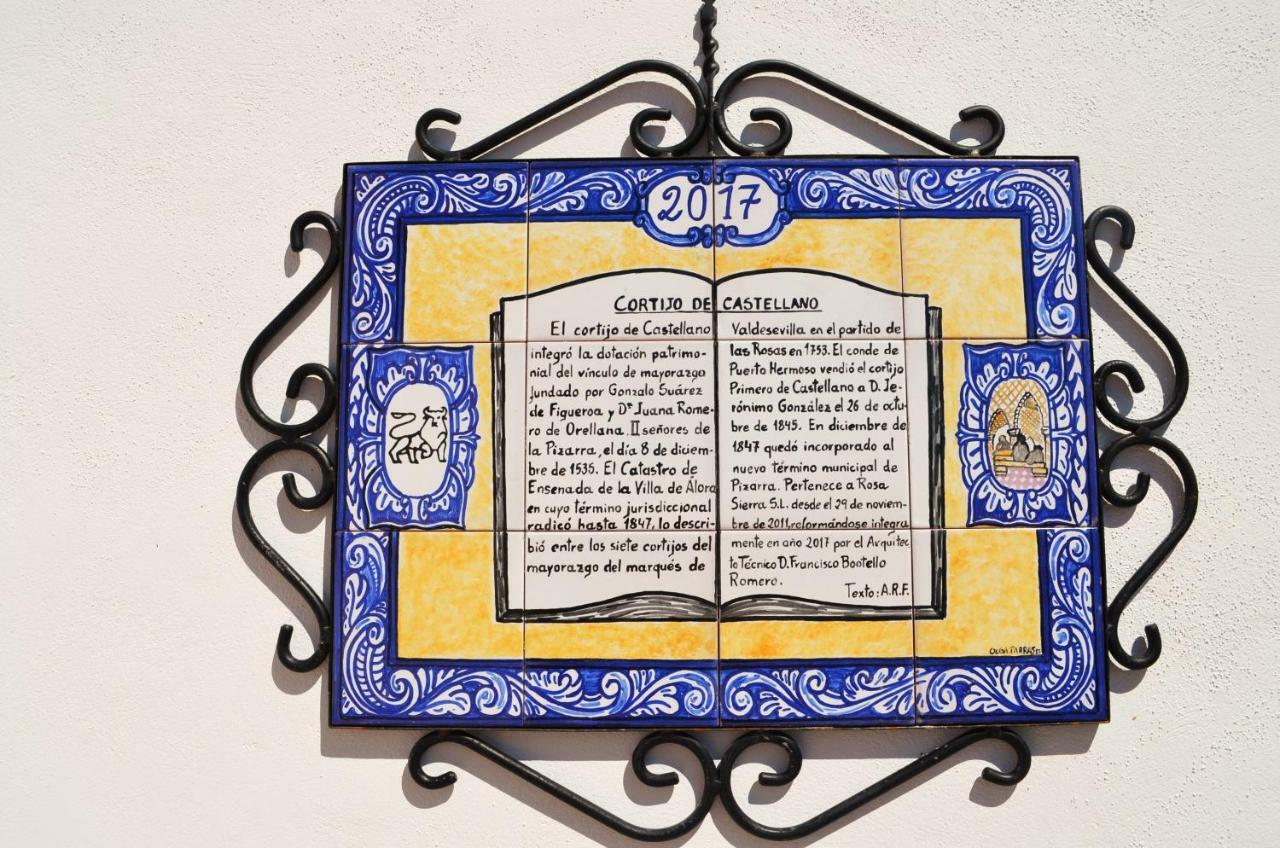 2017
CORTIJO DE CASTELLANO
El cortijo de Castellano
integró la dotación patrimo-
nial del vínculo de mayorazgo
fundado por Gonzalo Suárez
de Figueroa y Dª Juana Rome-
ro de Orellana, II señores de
la Pizarra, el día 8 de diciem-
bre de 1535. El Catastro de
Ensenada de la Villa de Álora
en cuyo término jurisdiccional
radicó hasta 1847, lo descri-
bió entre los siete cortijos del
mayorazgo del marqués de
Valdesevilla en el partido de
las Rosas en 1753. El conde de
Puerto Hermoso vendió el cortijo
Primero de Castellano a D. Je-
rónimo González el 26 de octu-
bre de 1845. En diciembre de
1847 quedó incorporado al
nuevo término municipal de
Pizarra. Pertenece a Rosa
Sierra S.L. desde el 29 de noviem-
bre de 2011, reformándose integra
mente en año 2017 por el Arquitec
to Técnico D. Francisco Bootello
Romero.
Texto: A.R.F.